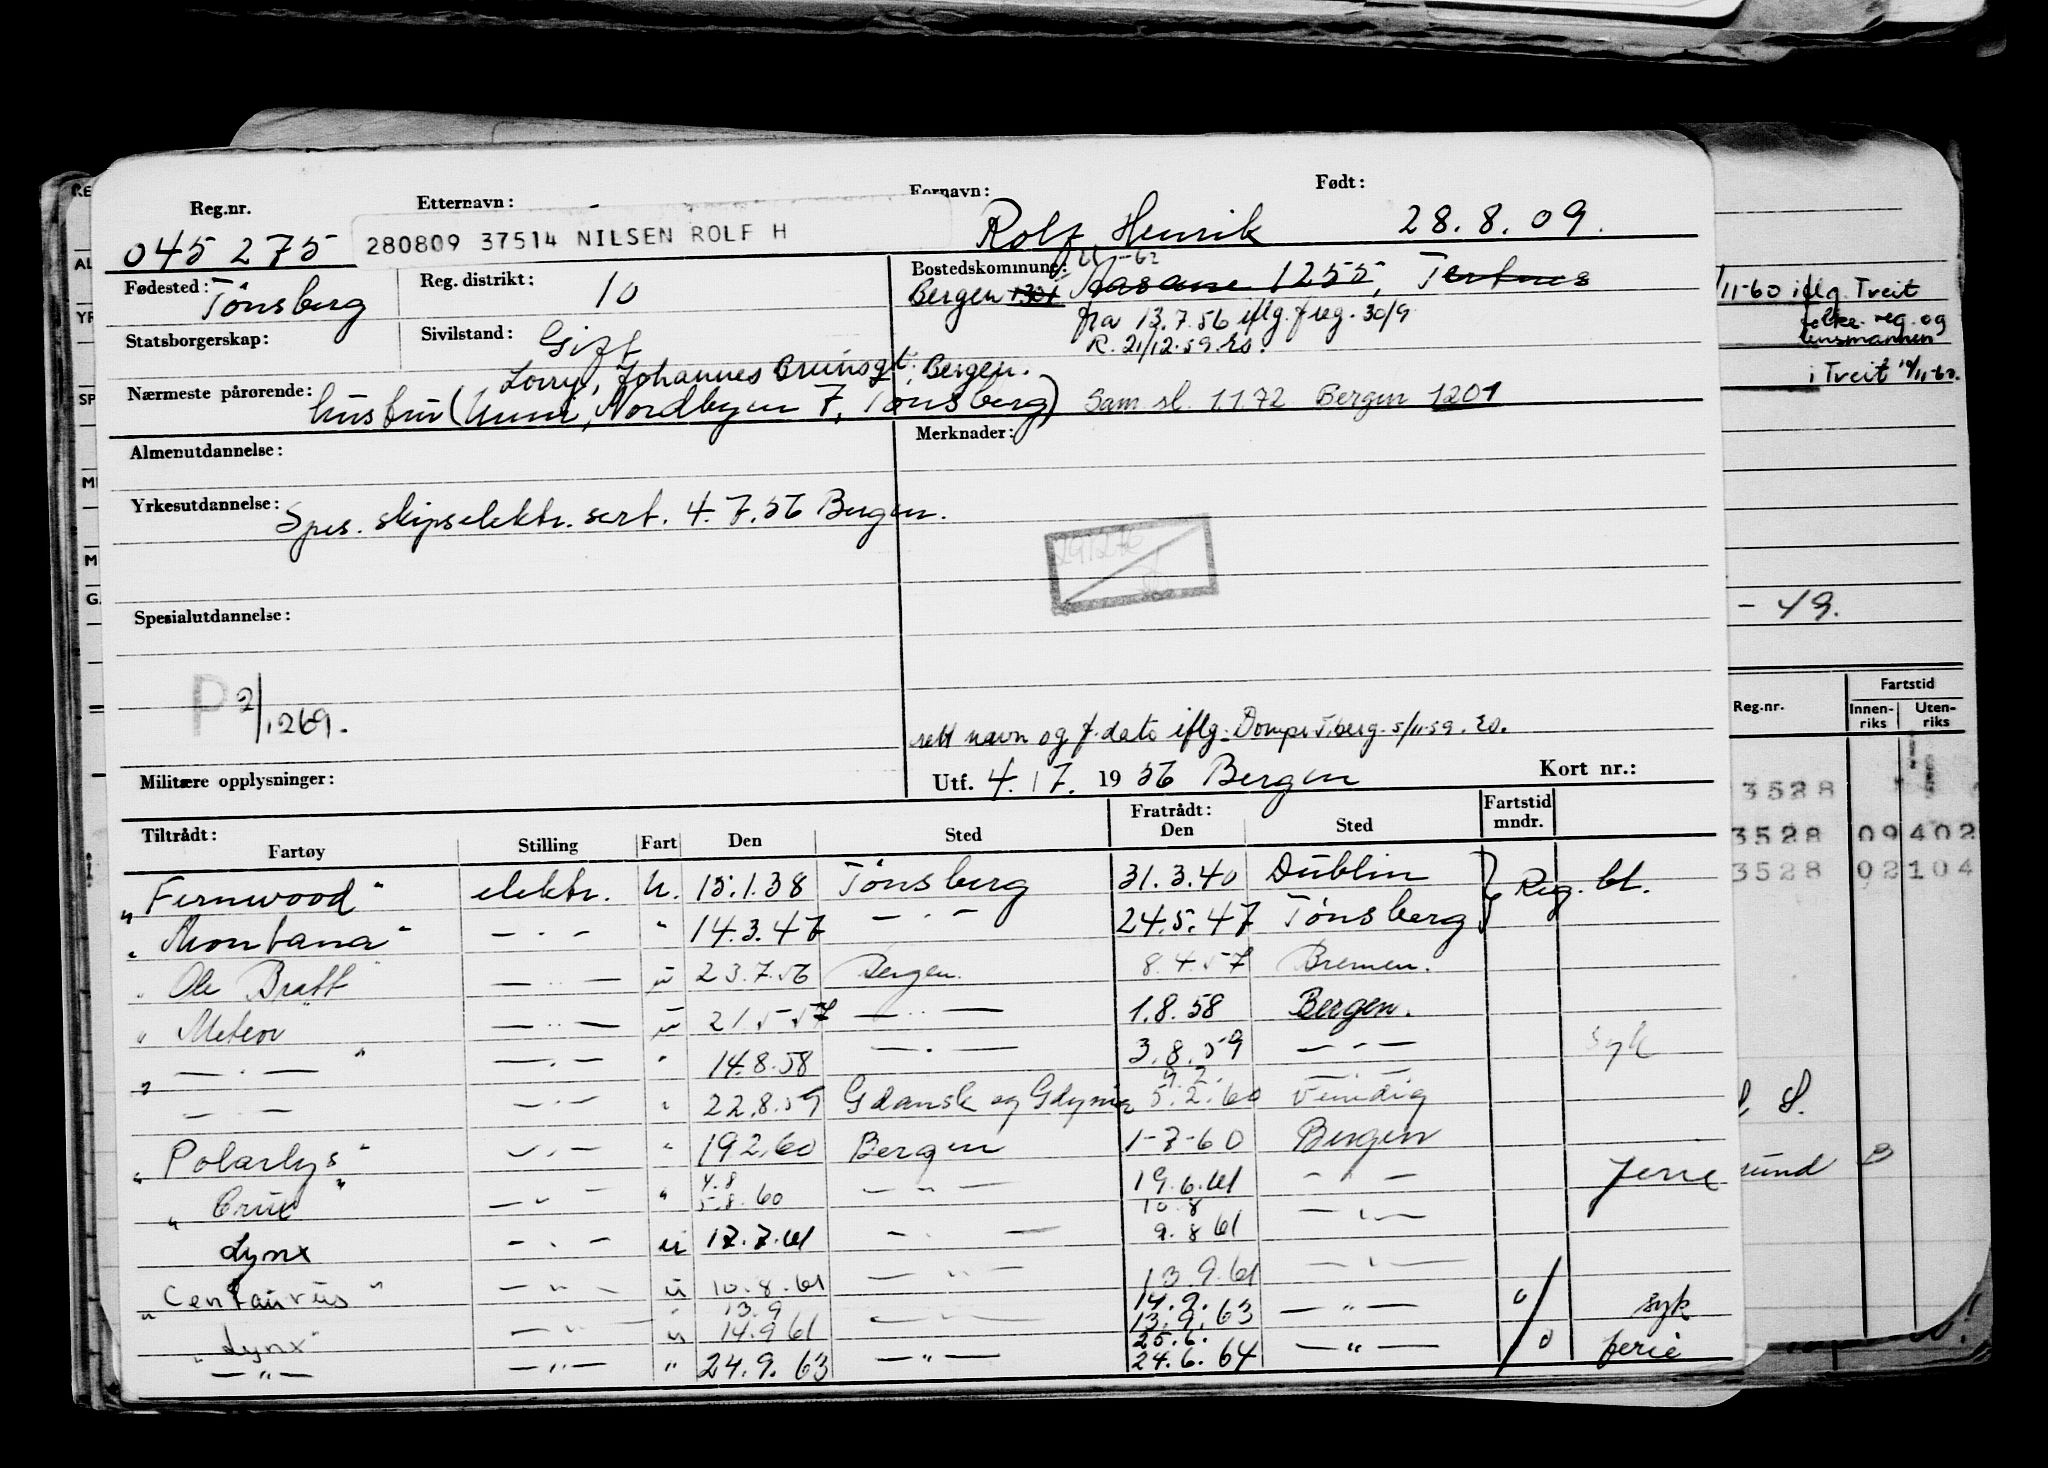 Reg.nr. Etternavn: Fornavn: Født:
045275 280809 37514 NILSEN ROLF H Rolf Henrik 28.8.09.
Fødested: Tönsberg Reg. distrikt: 10 Bostedskommune: Bergen 1301 Aasane 1255, Tertnes
fra 13.7.56 iflg. freg. 30/9
R. 21/12.59. Es.
Statsborgerskap: Sivilstand: Gift
Lorry, Johannes Bruinsgt. Bergen.
Nærmeste pårørende: hustru (Unni, Nordbyen 7, Tönsberg) Sam sl. 1.1.72 Bergen 1201
Almenutdannelse: Merknader:
Yrkesutdannelse: Spes. skipselektr. sert. 4.7.56 Bergen.
Spesialutdannelse:
P 2/1269.
rett navn og f.dato iflg. Dompr. T.berg. 5/11-59. Es.
Militære opplysninger: Utf. 4./7. 1956 Bergen Kort nr.:
Tiltrådt: Fratrådt: Fartstid
Fartøy Stilling Fart Den Sted Den Sted mndr.
"Fernwood" elektr. U. 15.1.38 Tönsberg 31.3.40 Dublin } Reg. bl.
"Montana" — . — " 14.3.47 — . — 24.5.47 Tönsberg
"Ole Bratt" — .. — u 23.7.56 Bergen. 8.4.57 Bremen.
"Meteor — .. — u 21.5.57 — .. — 1.8.58 Bergen.
" — . — " — . — " 14.8.58 — . — 3.8.59 — . — syk
— . — — .. — " 22.8.59 Gdansk og Gdynia 4.2. 5.2.60 Venedig
"Polarlys" — . — " 19.2.60 Bergen 1-7-60 Bergen
"Crux" — " — " 4.8 5.8.60 — " — 19.6.61 — . — ferie
Lynx — . — u 17.7.61 — . — 10.8 9.8.61 — . —
"Centaurus" — " — u 10.8.61 — " — 13.9.61 — " —
"Lynx" — " — u 13.9 14.9.61 — " — 14.9. 13.9.63 — " — 0 syk
— " — — " — " 24.9.63 — " — 25.6. 24.6.64 — " — 0 ferie
/11-60 iflg. Treit
folkereg. og
lensmannen
i Treit 14/11-60.
- 49.
Reg.nr. Fartstid
Innenriks Utenriks
3528
3528 09 402
3528 02 104
sund